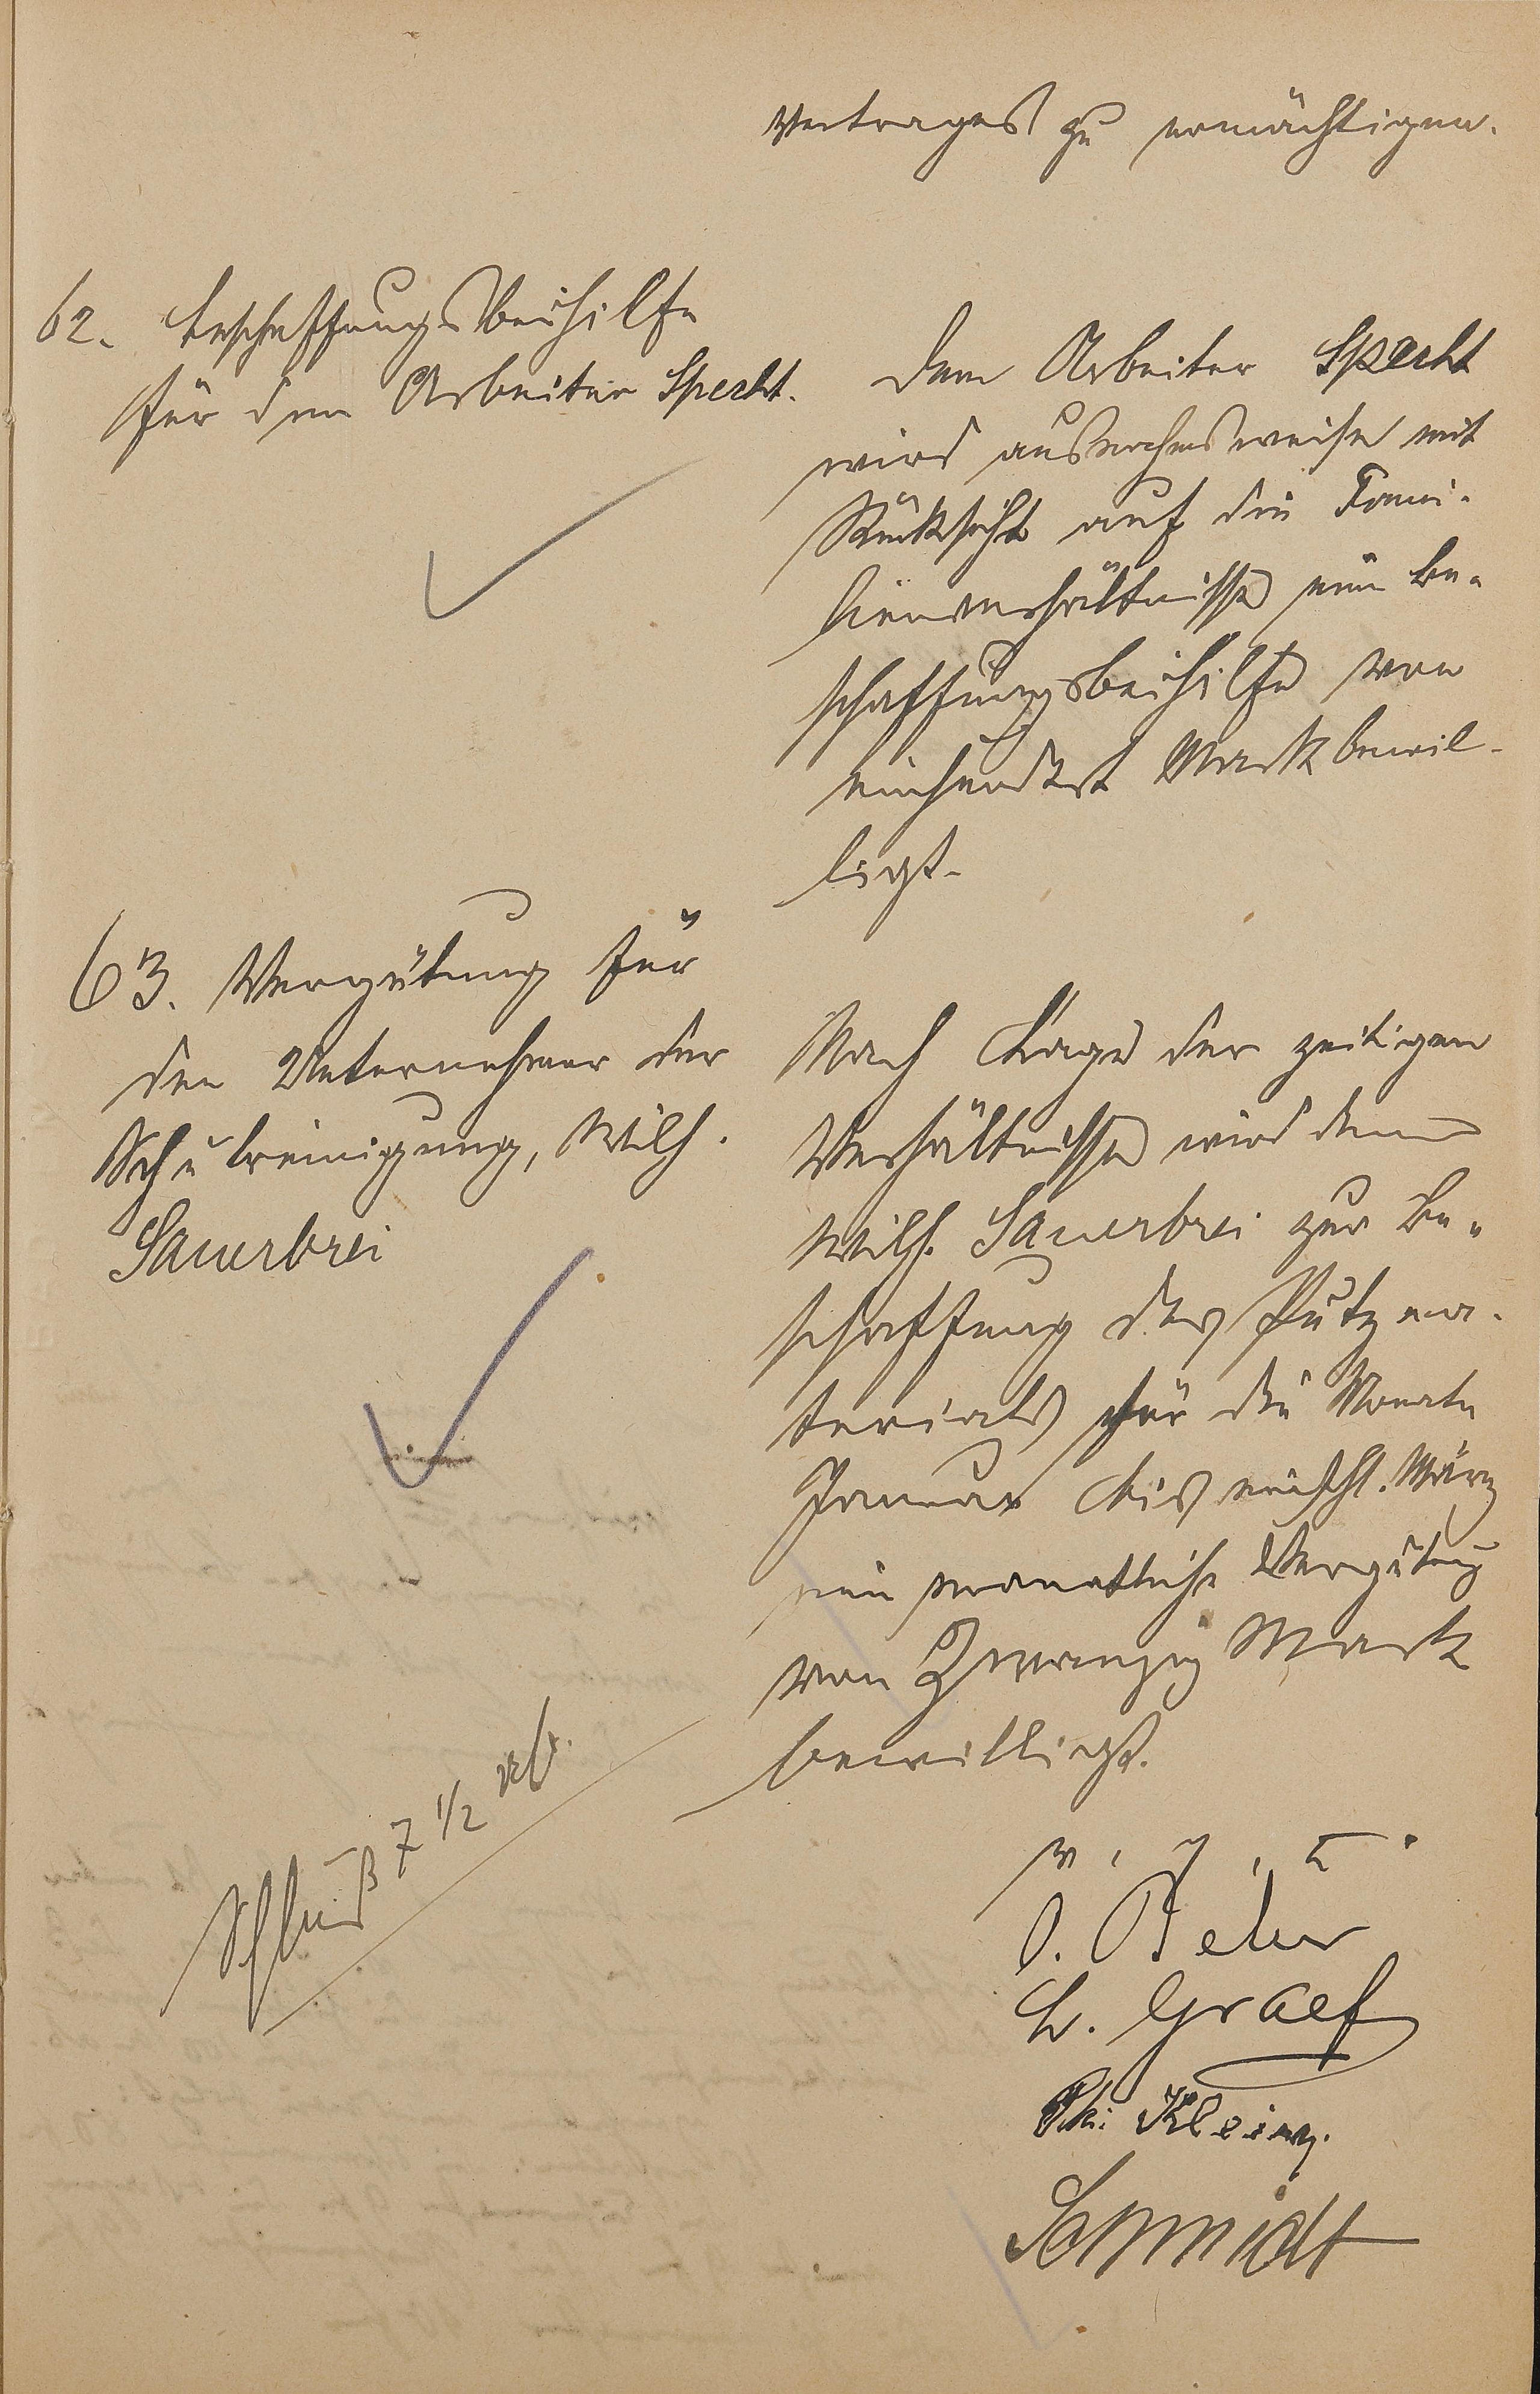 Vertrages zu ermächtigen.
62. Beschaffungsbeihilfe
für den Arbeiter Specht.
Dem Arbeiter Specht
wird ausnahmsweise mit
Rücksicht auf die Fami-
lienverhältnisse eine Be-
schaffungsbeihilfe von
einhundert Mark bewil-
ligt.
63. Vergütung für
den Unternehmer der
Schulreinigung, Wilh.
Sauerbrei
Nach Lage der zeitigen
Verhältnisse wird dem
Wilh. Sauerbrei zur Be-
schaffung des Putzma-
terials für die Monate
Januar bis einschl. März
eine monatliche Vergütung
von Zwanzig Mark
bewilligt.
Schluß 7 1/2 Uhr.
v. g. u.
L. Graef
Klein.
Schmidt